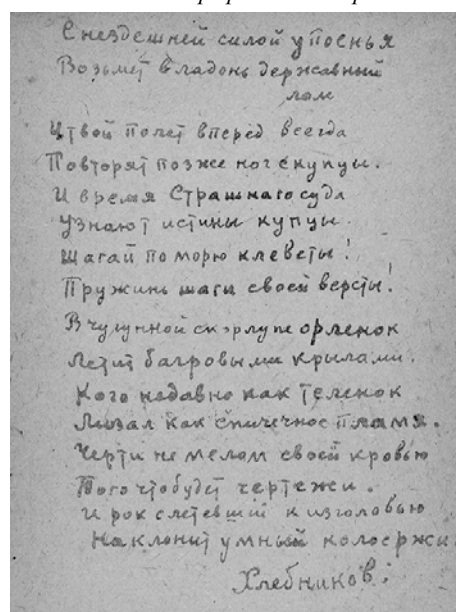 С нездешней силой упоенья
Возьмет в ладонь державный
лом
И твой полет вперед всегда
Повторят позже ног скупцы.
И время Страшнаго суда
Узнают истины купцы.
Шагай по морю клеветы!
Пружинь шаги своей версты!
В чугунной скорлупе орленок
Летит багровыми крылами.
Кого недавно как теленок
Лизал как спичечное пламя.
Черти не мелом своей кровью
Того что будет чертежи.
И рок слетевший к изголовью
Наклонит умный колос ржи
Хлебников.